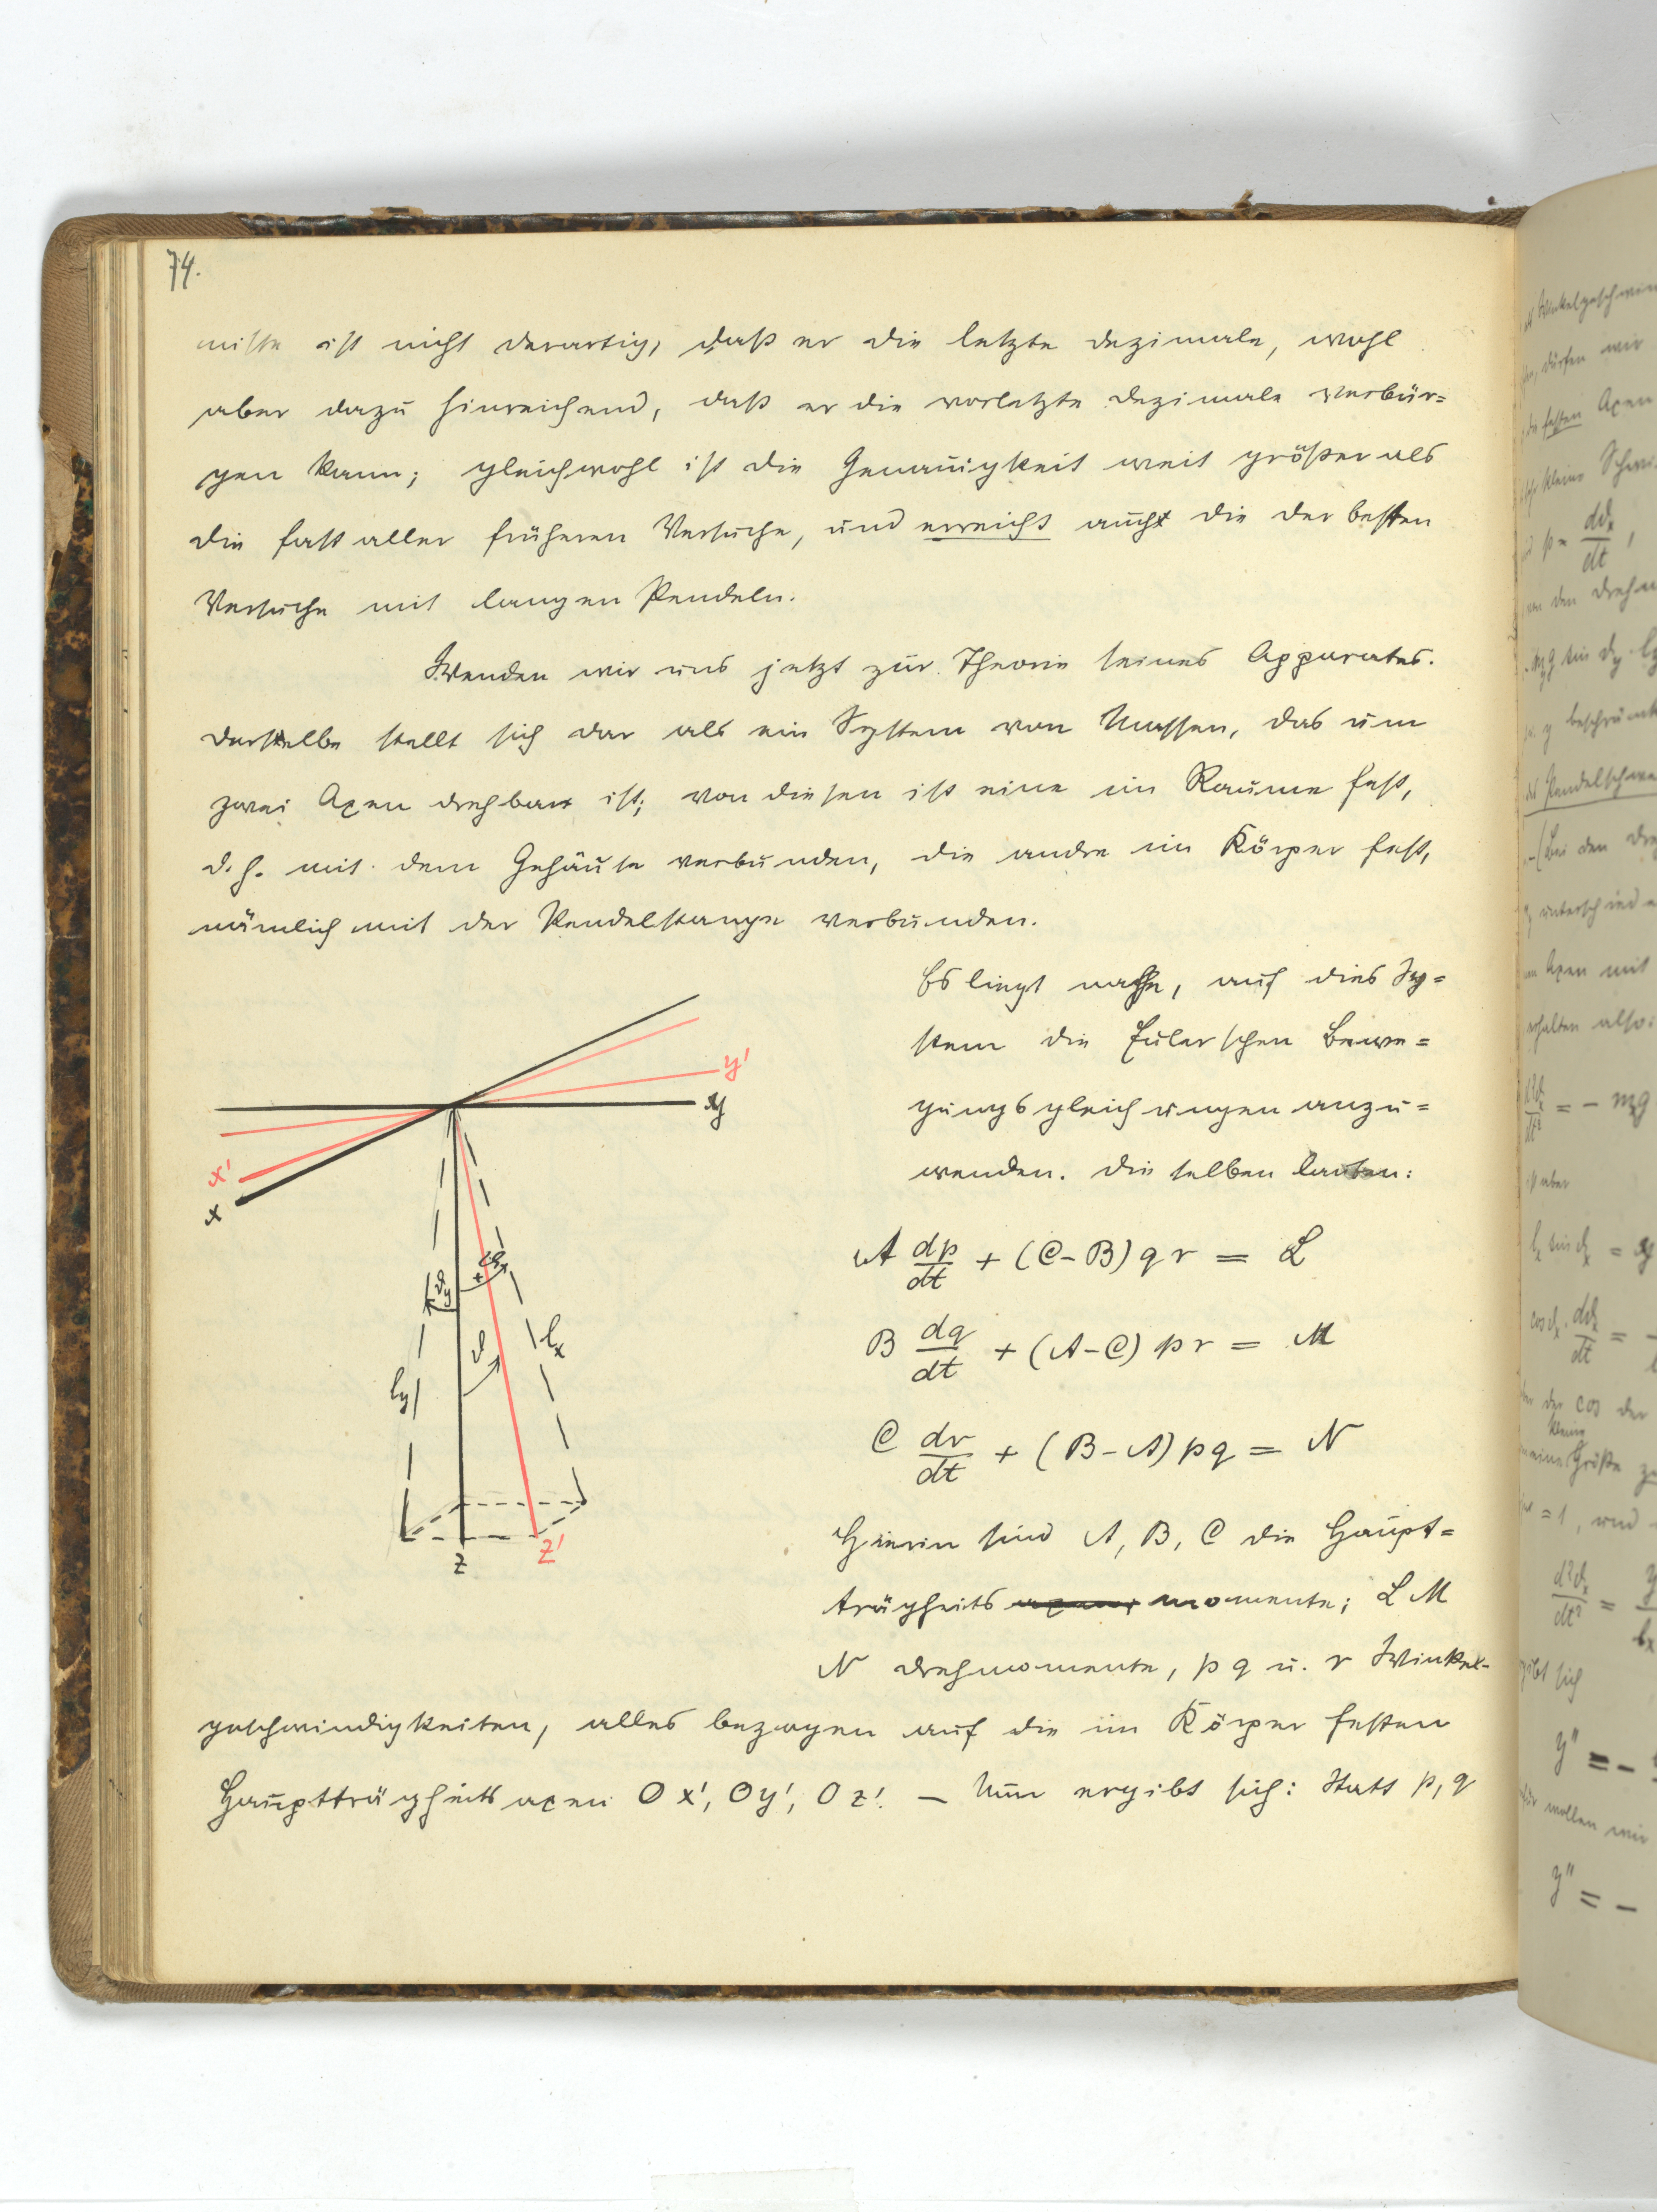 74.
nisse ist nicht derartig, daß er die letzte Dezimale, wohl
aber dazu hinreichend, daß er die vorletzte Dezimale verbür=
gen kann; gleichwohl ist die Genauigkeit weit größer als
die fast aller früheren Versuche, und erreicht auch die der besten
Versuche mit langen Pendeln.
Wenden wir uns jetzt zur Theorie seines Apparates.
Derselbe stellt sich dar als ein System von Massen, das um
zwei Axen drehbar ist; von diesen ist eine im Raume fest,
d.h. mit dem Gehäuse verbunden, die andre im Körper fest,
nämlich mit der Pendelstange verbunden.
Es liegt nahe, auf dies Sy=
stem die Eulerschen Bewe=
gungsgleichungen anzu=
wenden. Dieselben lauten:
y'
y
x'
x
ϑy
+
ϑx
ϑ
lx
ly
z
z'
A dp/dt + (C-B) q r = L
B dq/dt + (A-C) p r = M
C dr/dt + (B-A) p q = N
Hierin sind A, B, C die Haupt=
trägheitsmomente; L M
N Drehmomente, p q u. r Winkel-
geschwindigkeiten, alles bezogen auf die im Körper festen
Hauptträgheitsaxen O x', O y', O z'. — Nun ergibt sich: Statt p, q